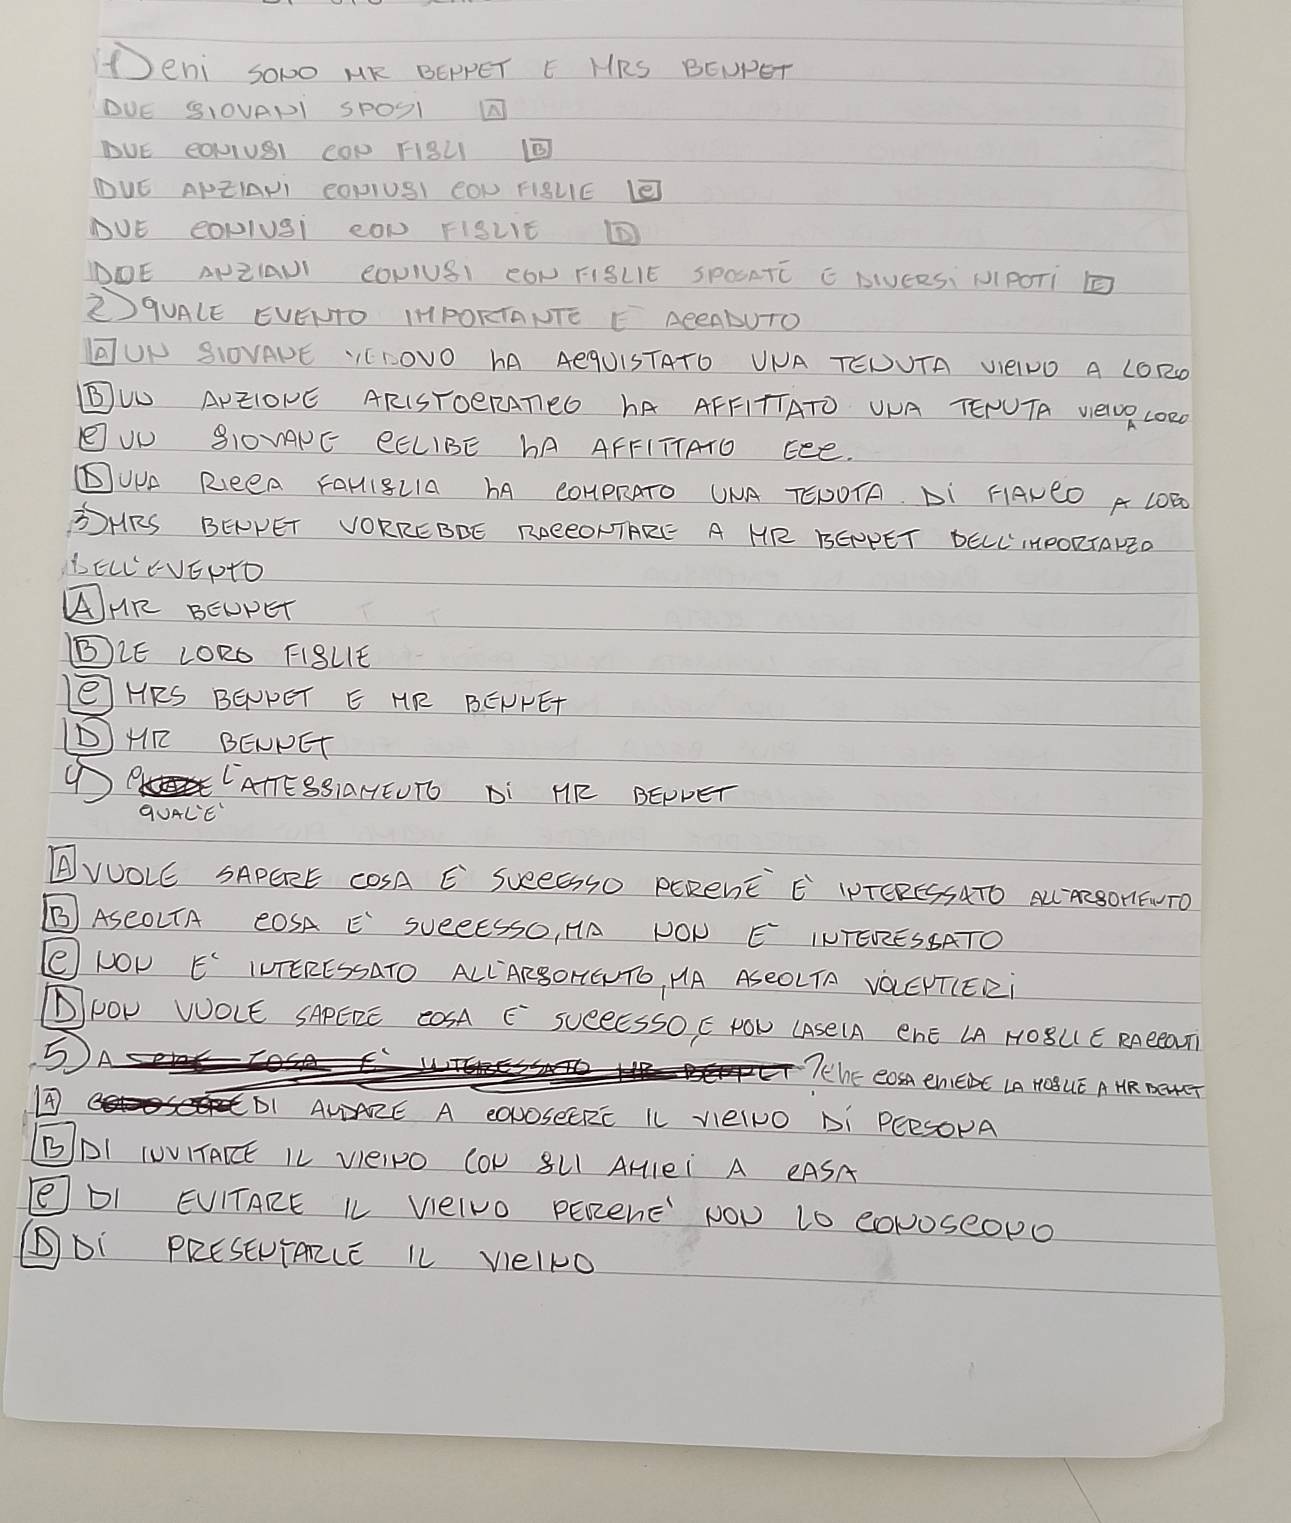 1) Chi SONO MR BENNET E MRS BENNET
DUE GIOVANI SPOSI A
DUE CONIUGI CON FIGLI B
DUE ANZIANI CONIUGI CON FIGLIE C
DUE CONIUGI CON FIGLIE D
DUE ANZIANI CONIUGI CON FIGLIE SPOSATE E DIVERSI NIPOTI E
2) QUALE EVENTO IMPORTANTE E ACCADUTO
A UN GIOVANE VEDOVO hA ACQUISTATO UNA TENUTA VICINO A LORO
B UN ANZIONE ARISTOCRATICO hA AFFITTATO UNA TENUTA VICINO A LORO
C UN GIOVANE CELIBE hA AFFITTATO ECC.
D UNA RICCA FAMIGLIA hA COMPRATO UNA TENUTA Di FIANCO A LORO
3) MRS BENNET VORREBBE RACCONTARE A MR BENNET DELL'IMPORTANZA
DELL'EVENTO
A MR BENNET
B LE LORO FIGLIE
C MRS BENNET E MR BENNET
D MR BENNET
4) L'ATTEGGIAMENTO Di MR BENNET
QUAL'E'
A VUOLE SAPERE COSA E' SUCCESSO PERChE' E' INTERESSATO ALL'ARGOMENTO
B ASCOLTA COSA E' SUCCESSO, MA NON E' INTERESSATO
C NON E' INTERESSATO ALL'ARGOMENTO, MA ASCOLTA VOLENTIERi
D NON VUOLE SAPERE COSA E' SUCCESSO, E NON LASCIA ChE LA MOGLIE RACCONTi
5) A ? ChE COSA ChIEDE LA MOGLIE A MR BENNET
A DI ANDARE A CONOSCERE IL VICINO Di PERSONA
B DI INVITARE IL VICINO CON GLI AMICi A CASA
C DI EVITARE IL VICINO PERChE' NON LO CONOSCONO
D Di PRESENTARLE IL VICINO